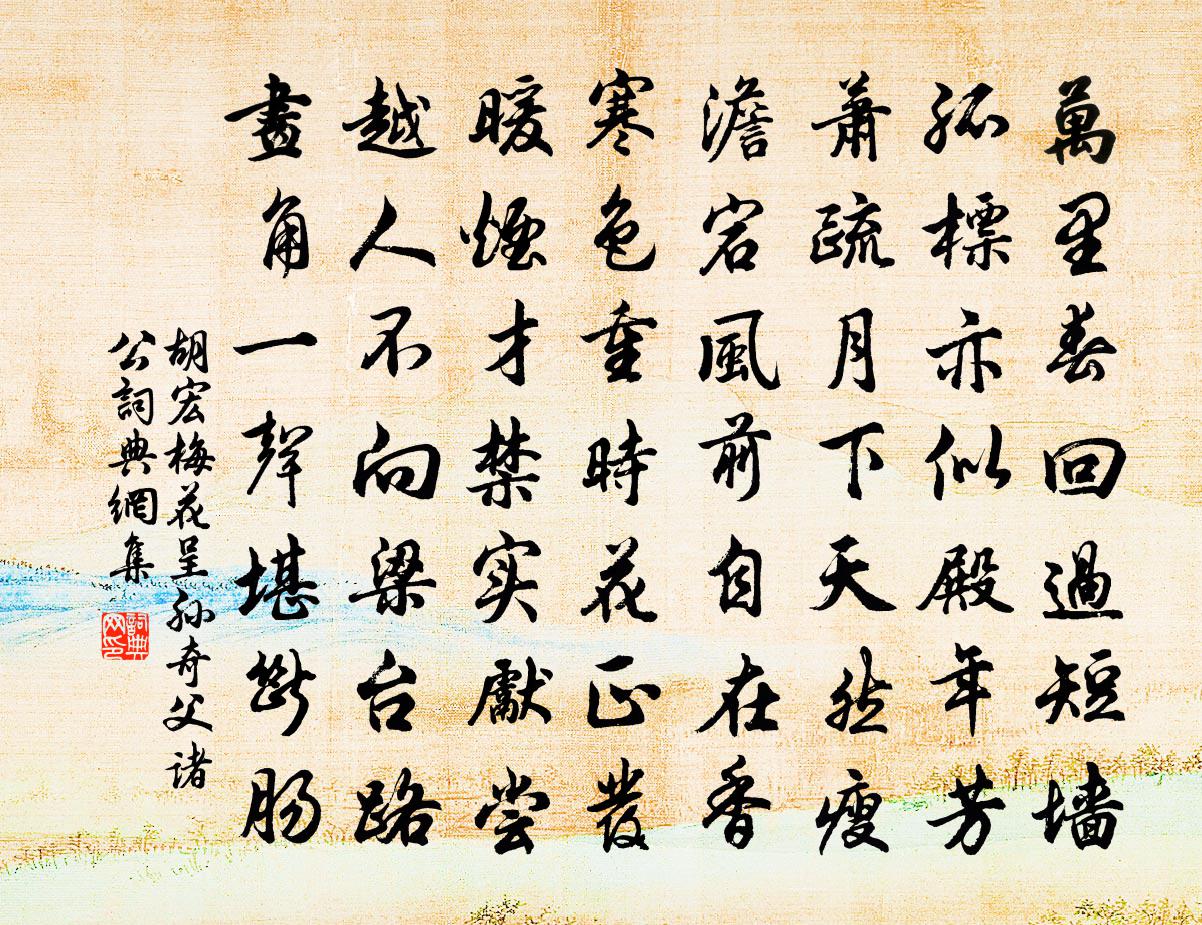 萬里春回過短墙
孤標亦似殿年芳
蕭疏月下天然瘦
澹宕風前自在香
寒色重時花正發
暖煙才禁实獻尝
越人不向梁台路
畫角一聲堪斷肠
胡宏梅花呈孙奇父诸
公詞典網集
詞典
网印